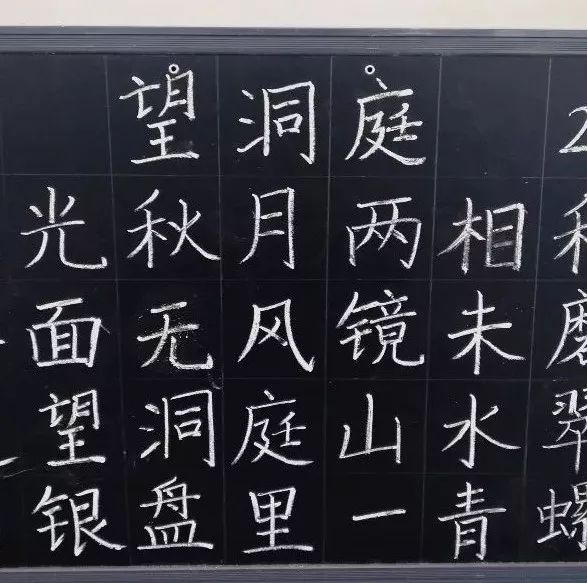 望洞庭
光秋月两相
面无风镜未磨
望洞庭山水翠
银盘里一青螺